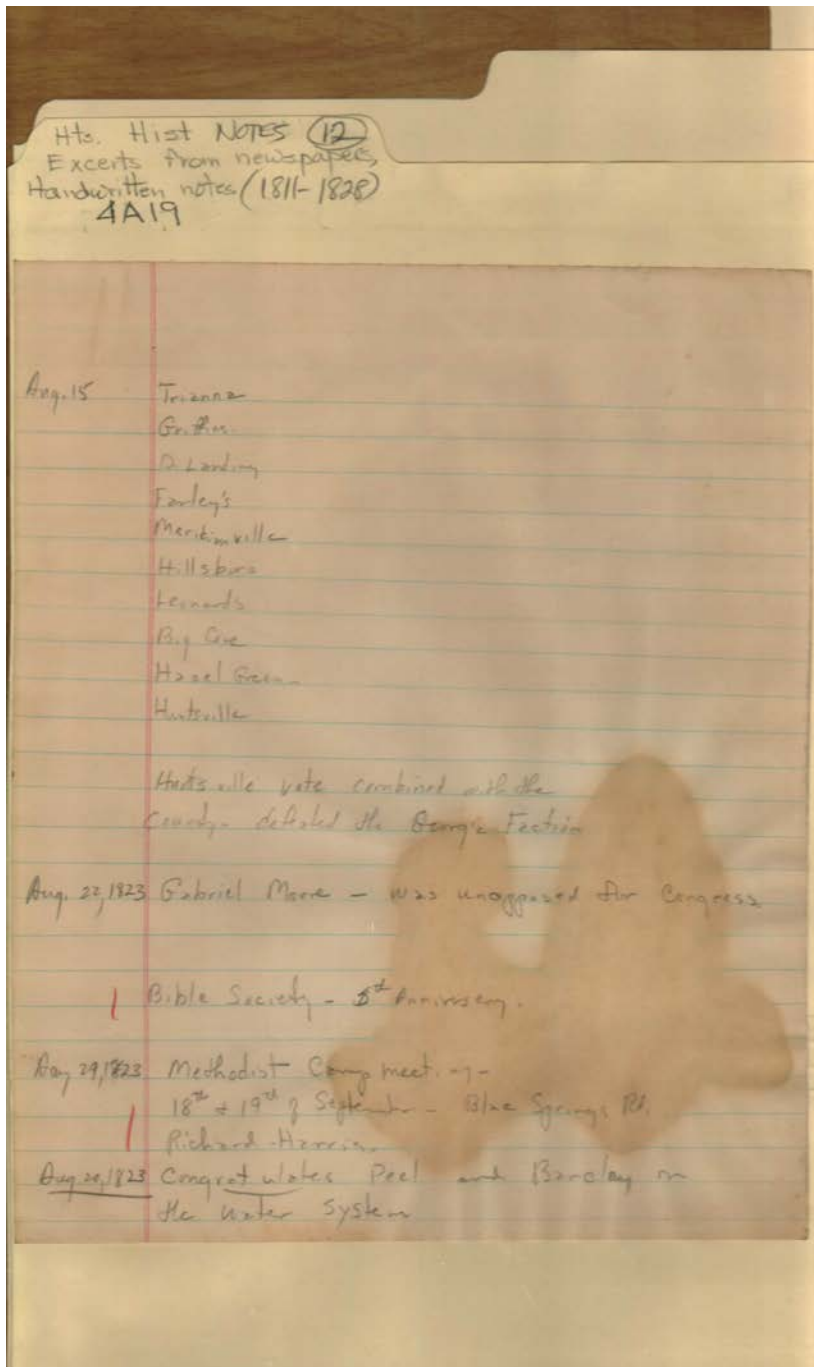 Hts. Hist NOTES (12)
Excerts from newspapers,
Handwritten notes (1811-1828)
4A19
Aug. 15 Trianna
D. Landing
Farley's
Hillsboro
Leonards
Big Cove
Hazel Green
Huntsville
Huntsville vote combined with the
County - defeated the Georgia Faction
Aug. 22, 1823 Gabriel Moore - was unopposed for Congress
Bible Society - 5th Anniversary.
Aug 29, 1823 Methodist Camp meeting -
18th & 19th of September - Blue Springs Rd.
Richard Harris.
Aug 29, 1823 Congratulates Peel and Barclay on
the water system